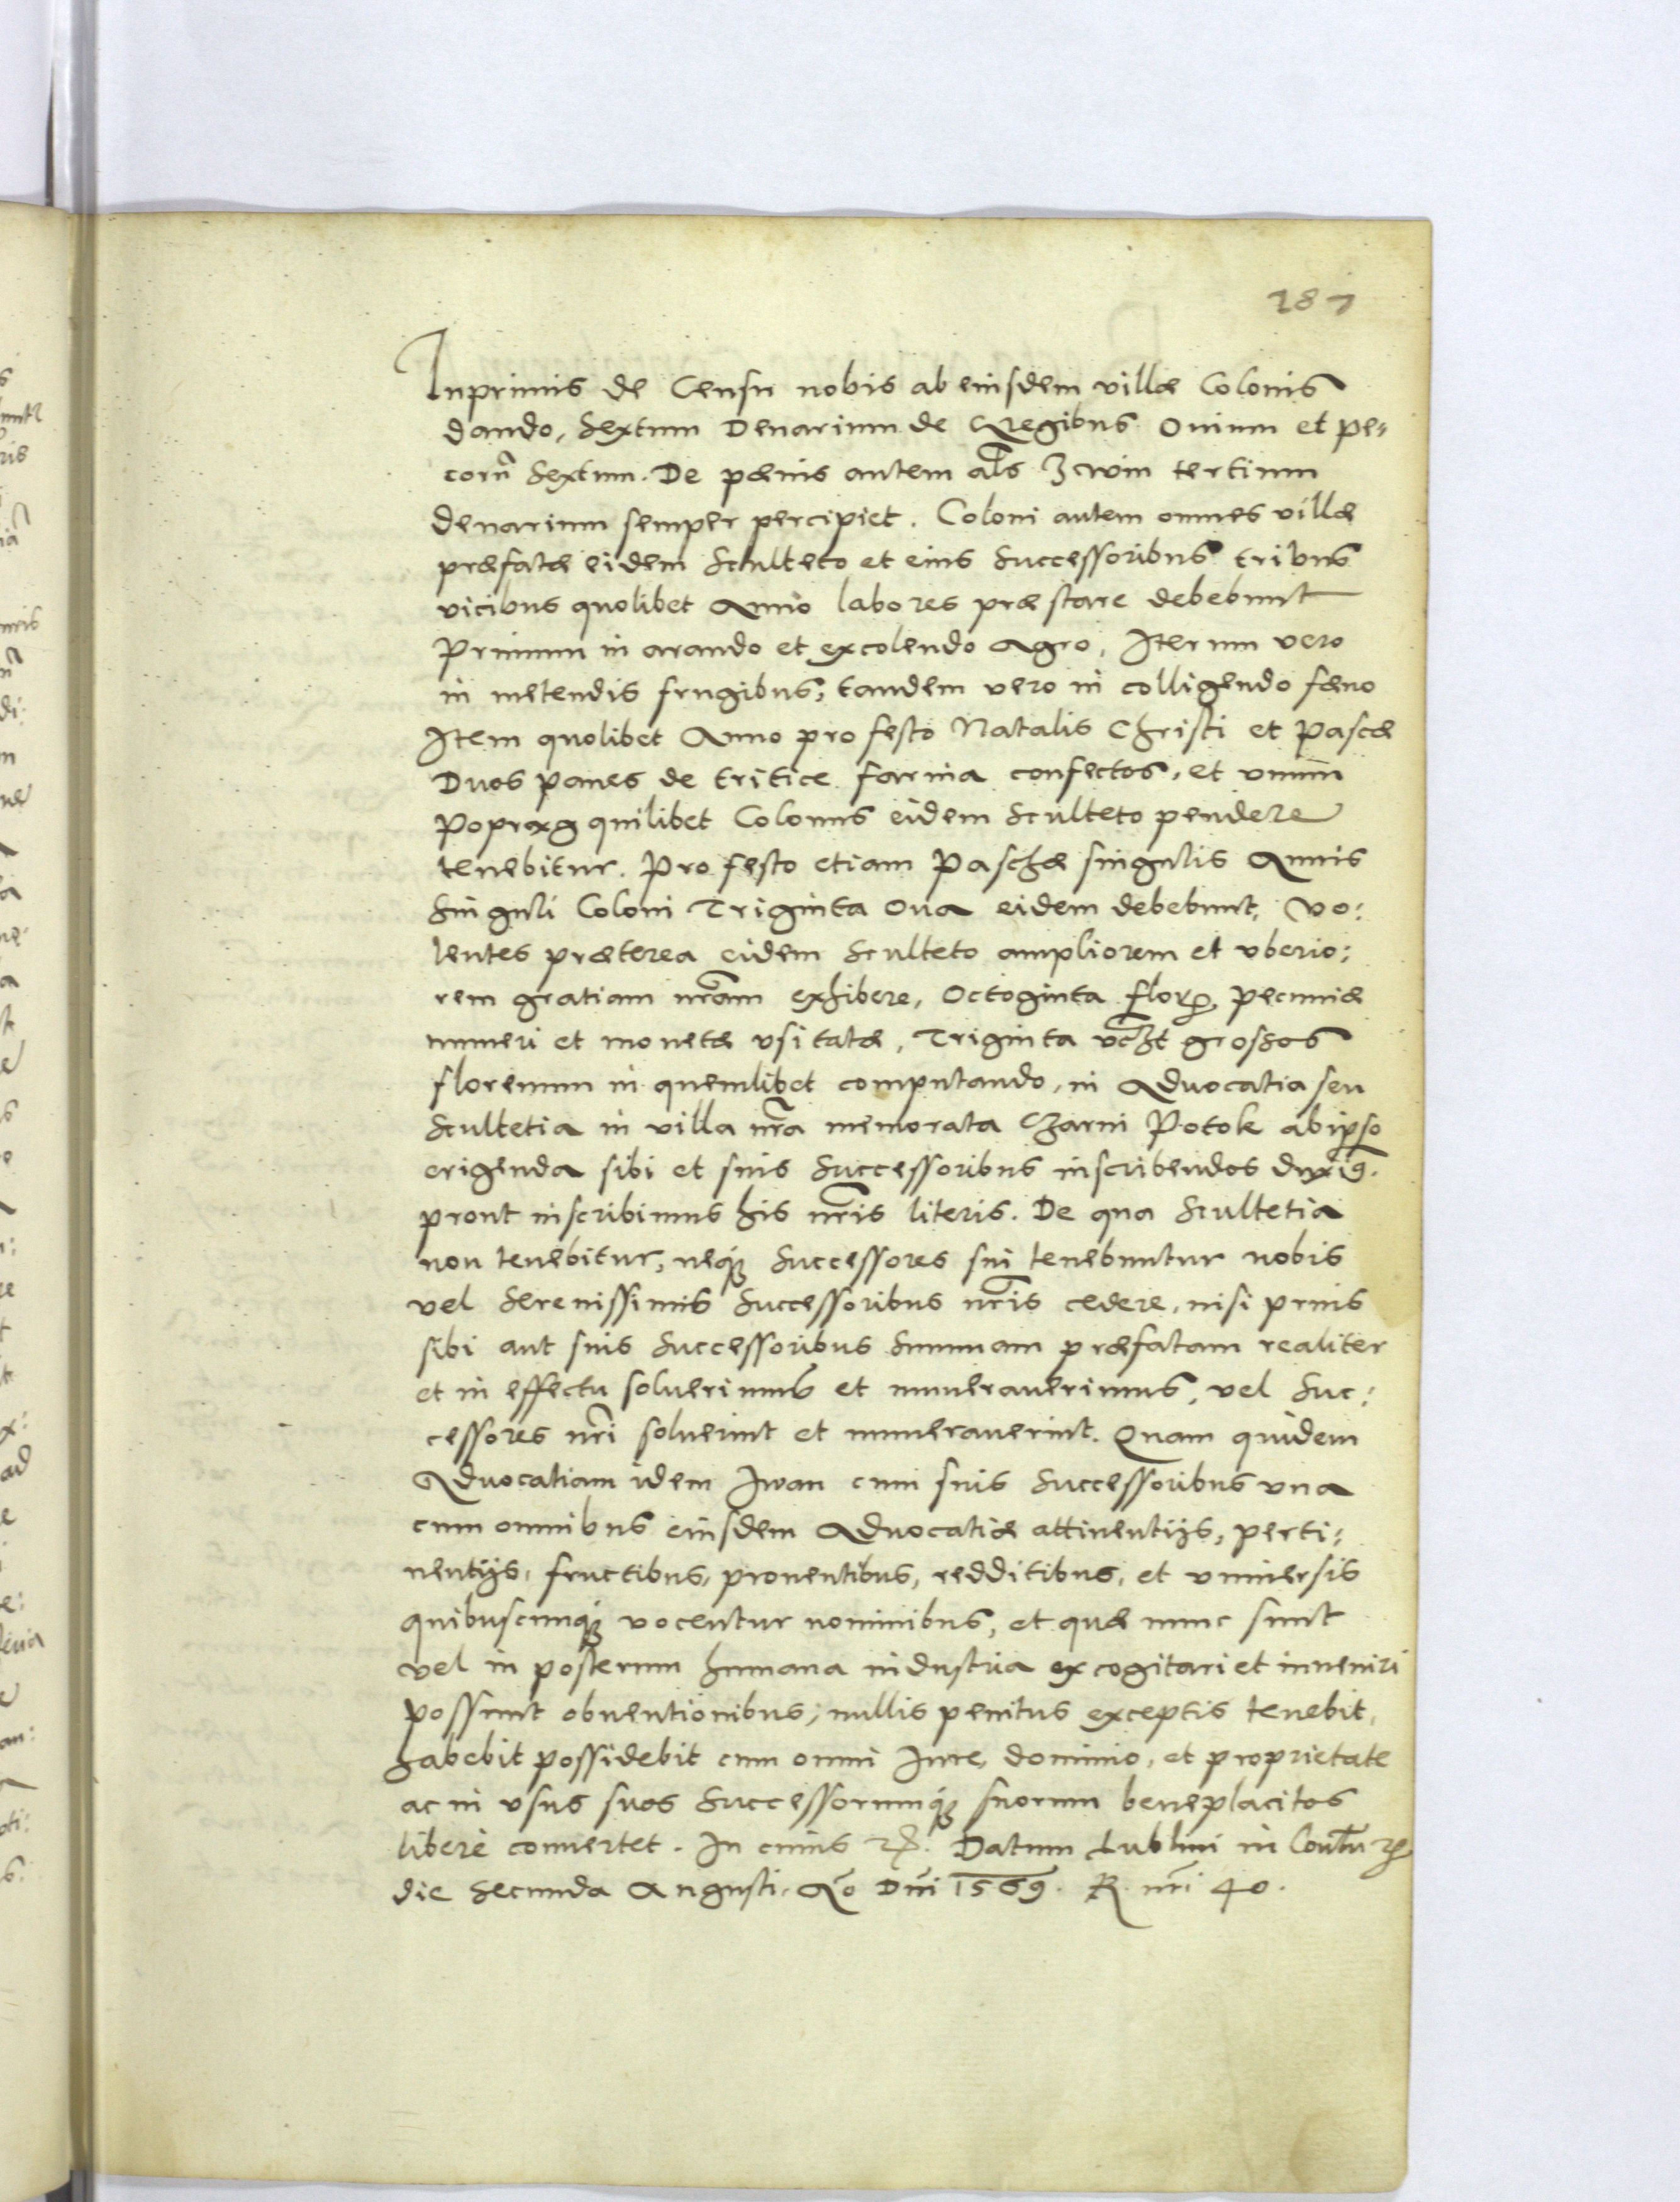 187
Inprimis de Censu nobis ab eiusdem villæ Colonis
dando, Sextum Denarium de Gregibus Ouium et pe-
corũ Sextum. De pænis autem als Zwin tertium
denarium semper percipiet. Coloni autem omnes villæ
præfatæ eidem Sculteto et eius Successoribus tribus
vicibus quolibet Anno labores præstare debebunt
Primum in arando et excolendo Agro, Iterum vero
in metendis frugibus, tandem vero in colligendo fæno
Item quolibet Anno pro festo Natalis Christi et Pascæ
Duos panes de tritice farina confectos, et vnum
Popræg quilibet Colonus eidem Sculteto pendere
tenebitur. Pro festo etiam Paschæ singulis Annis
Singuli Coloni Triginta Oua eidem debebunt, Vo:
lentes præterea eidem Sculteto ampliorem et vberio:
rem gratiam nram exhibere, Octoginta flor, pecuniæ
numeri et monetæ vsitatæ, Triginta grossos
florenum in quemlibet computando, in Aduocatia seu
Scultetia in villa nra memorata Czarni Potok ab ipso
erigenda sibi et suis Successoribus inscribendos duxim9.
prout inscribimus his nris literis. De qua Scultetia
non tenebitur, neq3 Successores sui tenebuntur nobis
vel Serenissimis Successoribus nris cedere, nisi prius
sibi aut suis Successoribus Summam præfatam realiter
et in effectu soluerimus et numerauerimus, vel Suc:
cessores nri soluerint et numerauerint. Quam quidem
Aduocatiam idem Iwan cum suis Successoribus vna
cum omnibus eiusdem Aduocatiæ attinentijs, perti:
nentijs, fructibus, prouentibus, redditibus, et vniuersis
quibuscumq3 vocentur nominibus, et quæ nunc sunt
vel in posterum humana industria excogitari et inueniri
possunt obuentionibus, nullis penitus exceptis tenebit,
habebit possidebit cum omni Iure, dominio, et proprietate
ac in vsus suos Successorumq3 suorum beneplacitos
libere conuertet. In cuius rei. Datum Lublini in Contu r
die Secunda Augusti. Ao Dni 1569. R. nri 40.